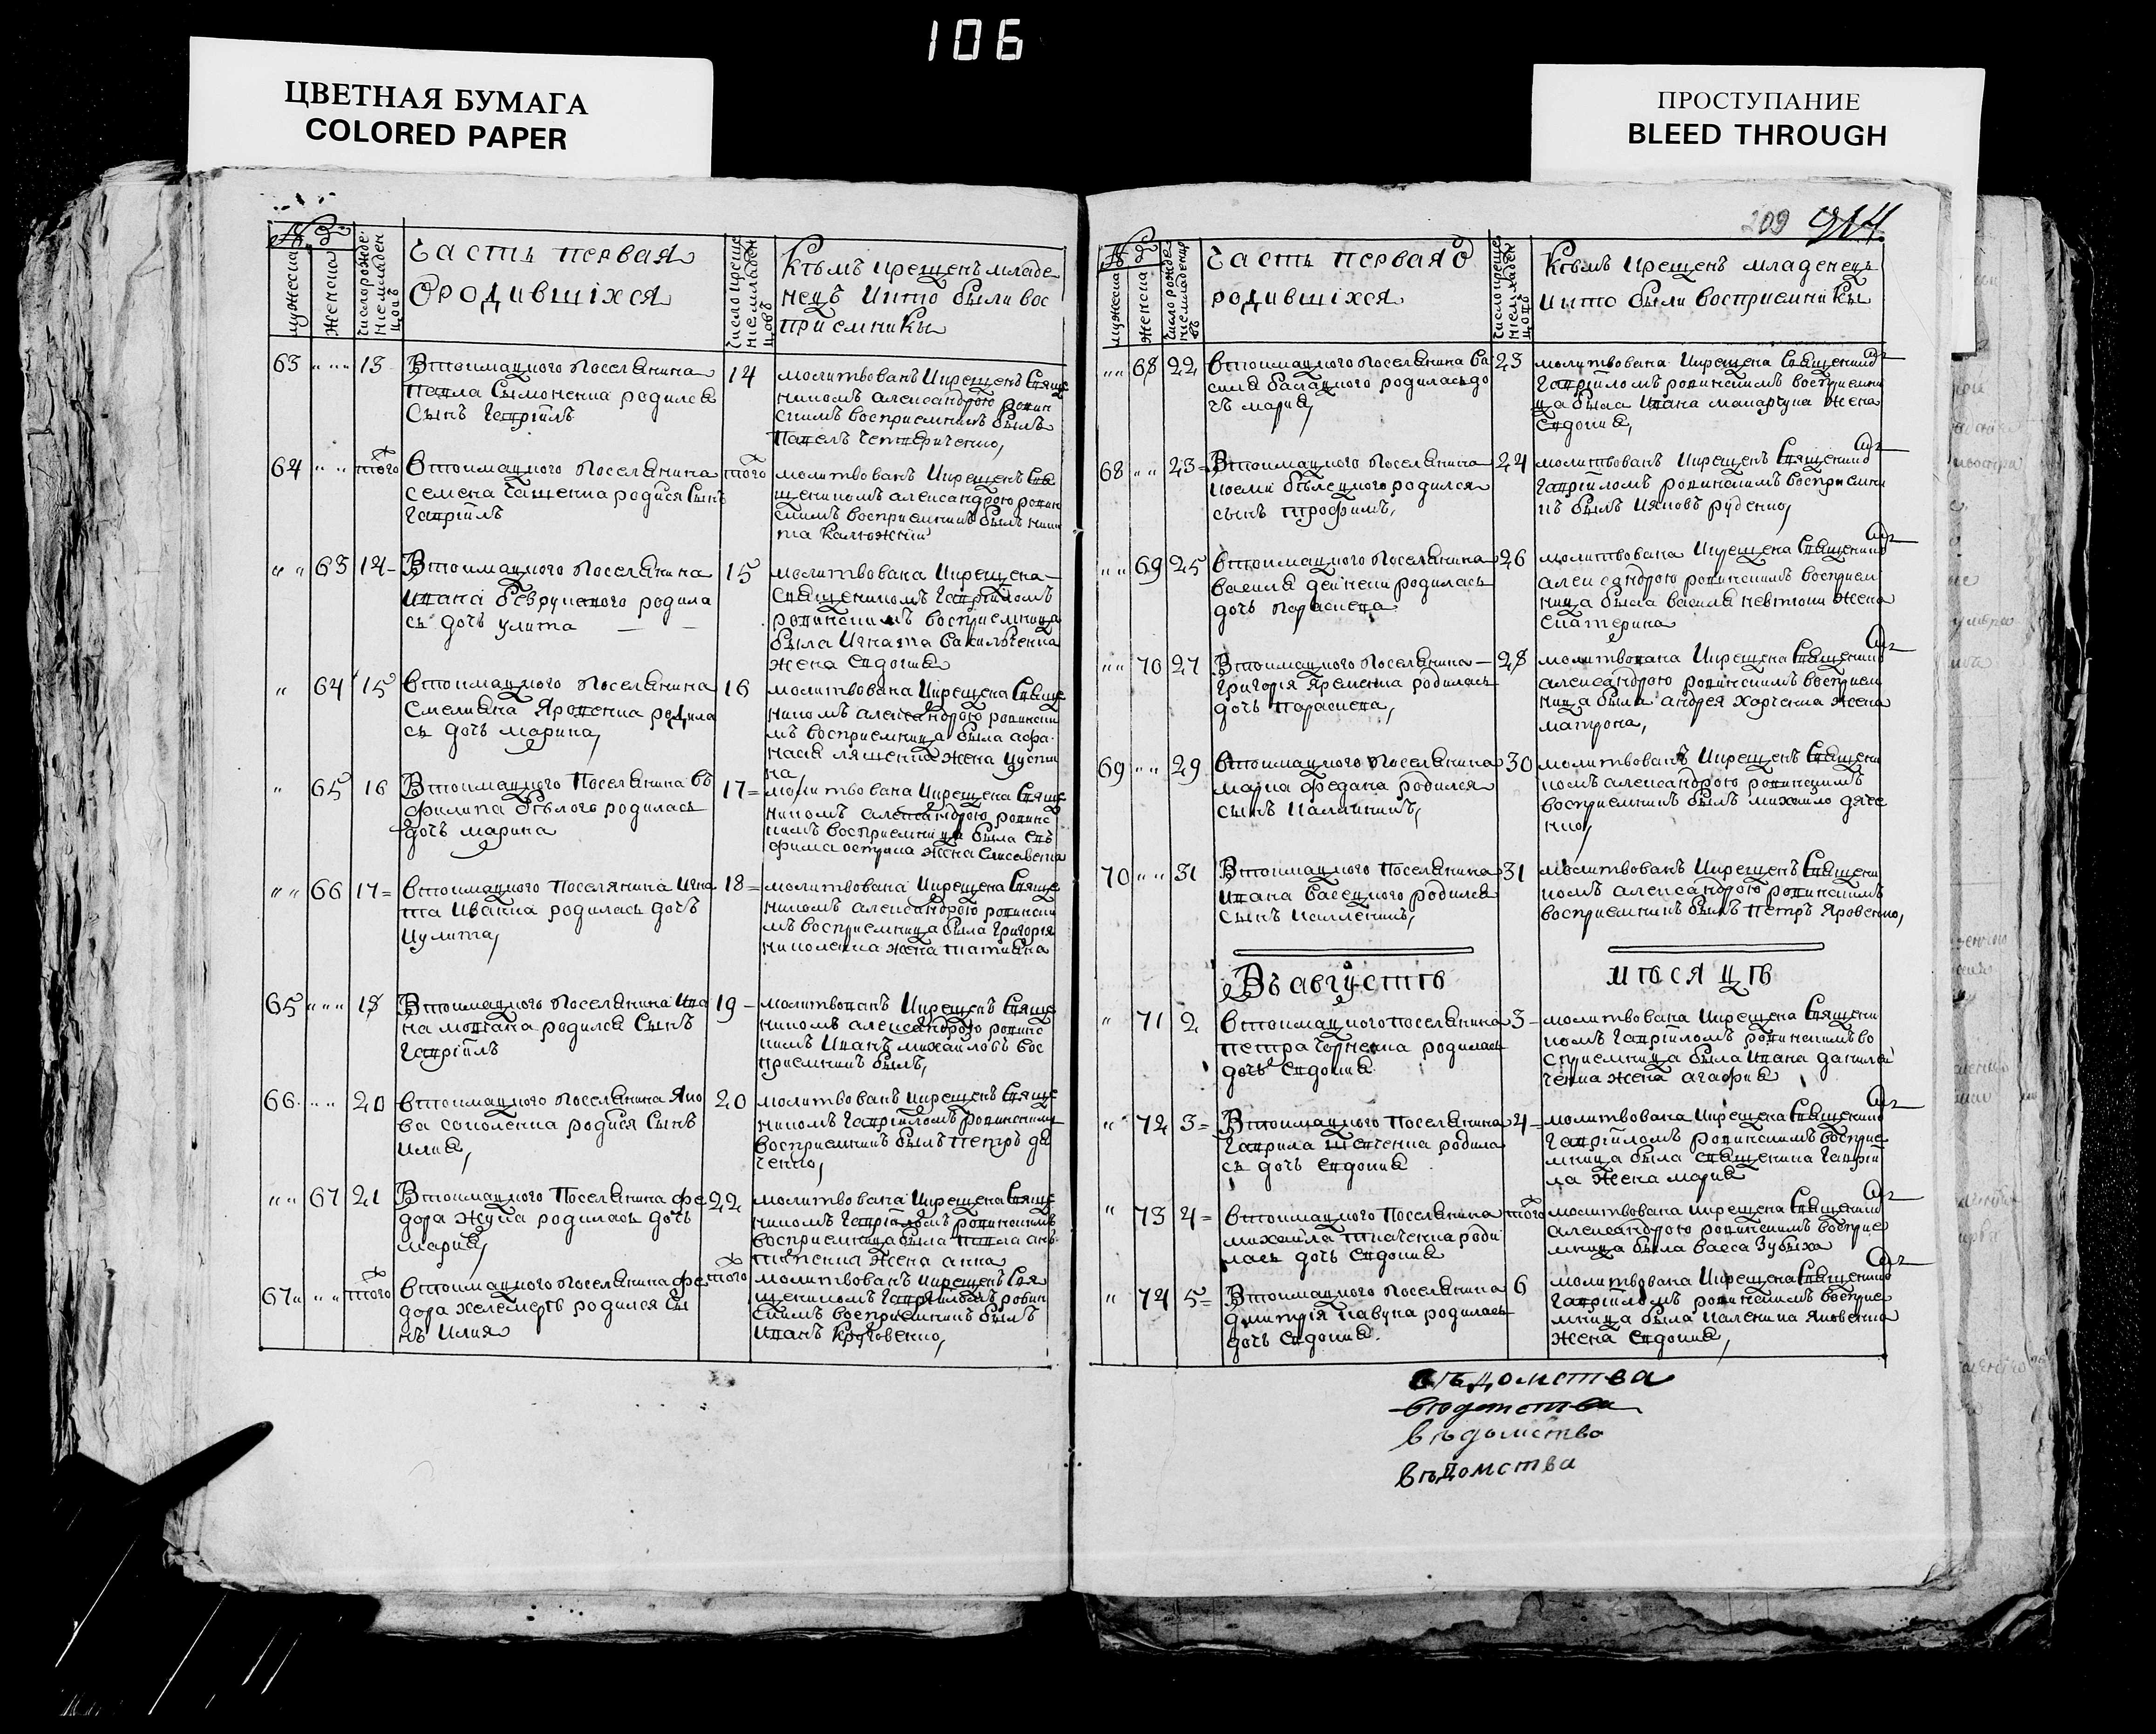 106
ЦВЕТНАЯ БУМАГА
COLORED PAPER
ПРОСТУПАНИЕ
BLEED THROUGH
№
мужеска
женска
число рожде
ние младен
цовъ
Часть первая
О родившихся
число креще
ние младен
цовъ
Кѣмъ крещенъ младе
нецъ и кто были вос
приемники
63 " " " 13
Втоймацкого поселянина
Павла Сымоненка родился
Сынъ Гавріилъ
14
молитвованъ и крещенъ свяще
никомъ александрою ровин
скимъ восприемникъ былъ
Павелъ Четвериченко,
64 " " того
втоймацкого поселянина
семена Чащенка родися Сынъ
Гавріилъ
того
молитвованъ и крещенъ свя
щеникомъ александрою ровин
скимъ восприемникъ былъ ники
та Калюжній
" " 63 14
Втоймацкого поселянина
Ивана безрукавого родила
съ дочъ улита
15
молитвована и крещена
священикомъ Гавріиломъ
ровинскимъ восприемница
была Игната Вакилченка
жена Евдокия
" 64 15
втоймацкого поселянина
Омеляна Яровенка родила
съ дочъ марина,
16
молитвована и крещена свяще
никомъ александрою ровински
мъ восприемница была афа
насия ляшенка жена иусти
на,
" 65 16
Втоймацкого поселянина въ
филипа бѣлого родилась
дочъ марина
17
молитвована и крещена свяще
никомъ александрою ровинс
кимъ восприемница была ев
фима остриа жена Елисавета
" " 66 17
втоймацкого поселянина игна
та Ивакна родилась дочъ
иулита,
18
молитвована и крещена свяще
никомъ александрою ровински
мъ восприемница была григория
николенка жена татияна
65 " " " 18
Втоймацкого поселянина Ива
на мовчана родился Сынъ
Гавріилъ
19
молитвованъ и крещенъ свяще
никомъ александрою ровинс
кимъ Иванъ михайловъ вос
приемникъ былъ,
66 " " 20
втоймацкого поселянина Яко
ва соколенка родися Сынъ
Илия,
20
молитвованъ и крещенъ свяще
никомъ Гавріиломъ ровинским
восприемникъ былъ петръ дя
ченко,
" " 67 21
Втоймацкого поселянина фе
дора жука родилась дочъ
Мария,
22
молитвована и крещена свяще
никомъ Гавріиломъ ровинскимъ
восприемница была павла
жена анна
67 " " " того
втоймацкого поселянина фе
дора родился сы
нъ Илия
того
молитвованъ и крещенъ свя
щеникомъ Гавріиломъ ровин
скимъ восприемникъ былъ
Иванъ Круговенко,
209 214
№
мужеска
женска
число рожде
ние младенцо
въ
Часть первая о
родившихся
число креще
ние младен
цовъ
Кѣмъ крещенъ младенецъ
и кто были восприемники
" " 68 22
втоймацкого поселянина Ва
силя балацкого родилась до
чъ мария,
23
молитвована и крещена священико
Гавріиломъ ровинскимъ восприемни
ца была Ивана жена
Евдокия,
68 " " 23
Втоймацкого поселянина
бѣлецкого родился
сынъ трофимъ,
24
молитвованъ и крещенъ священико
Гавріиломъ ровинскимъ восприемни
къ былъ иаковъ руденко,
" " 69 25
втоймацкого поселянина
василя дейнеки родилась
дочъ параскева
26
молитвована и крещена священико
александрою ровинскимъ восприем
ница была василя жена
екатерина
" " 70 27
Втоймацкого поселянина
григорія яременка родилась
дочъ параскева,
28
молитвована и крещена священико
александрою ровинскимъ восприем
ница была андрея харченка жена
матрона,
69 " " 29
втоймацкого поселянина
марка федана родился
сынъ калиникъ,
30
молитвованъ и крещенъ священи
комъ александрою ровинскимъ
восприемникъ былъ михайло дяче
нко,
70 " " 31
Втоймацкого поселянина
Ивана Васецкого родился
Сынъ калленикъ,
31
молитвованъ и крещенъ священи
комъ александрою ровинскимъ
восприемникъ былъ петръ яровенко,
Въ августѣ мѣсяцѣ
" 71 2
втоймацкого поселянина
петра Чорненка родилась
дочъ Евдокия
3
молитвована и крещена священи
комъ Гавріиломъ ровинскимъ во
сприемница была Ивана данил
ченка жена агафия
" 72 3
Втоймацкого поселянина
гаврила шевченка родила
съ дочъ Евдокия
4
молитвована и крещена священико
Гавріиломъ ровинскимъ восприе
мница была священика Гаврии
ла жена мария
" 73 4
втоймацкого поселянина
михайла ткаченка роди
лась дочъ Евдокия
того
молитвована и крещена священико
александрою ровинскимъ восприе
мница была васса Зубыха
" 74 5
Втоймацкого поселянина
димитрія кавуна родилась
дочъ Евдокия.
6
молитвована и крещена священико
Гавріиломъ ровинскимъ восприе
мница была каленика яковенка
жена Евдокия,
вѣдомства
вѣдомства
вѣдомства
вѣдомства